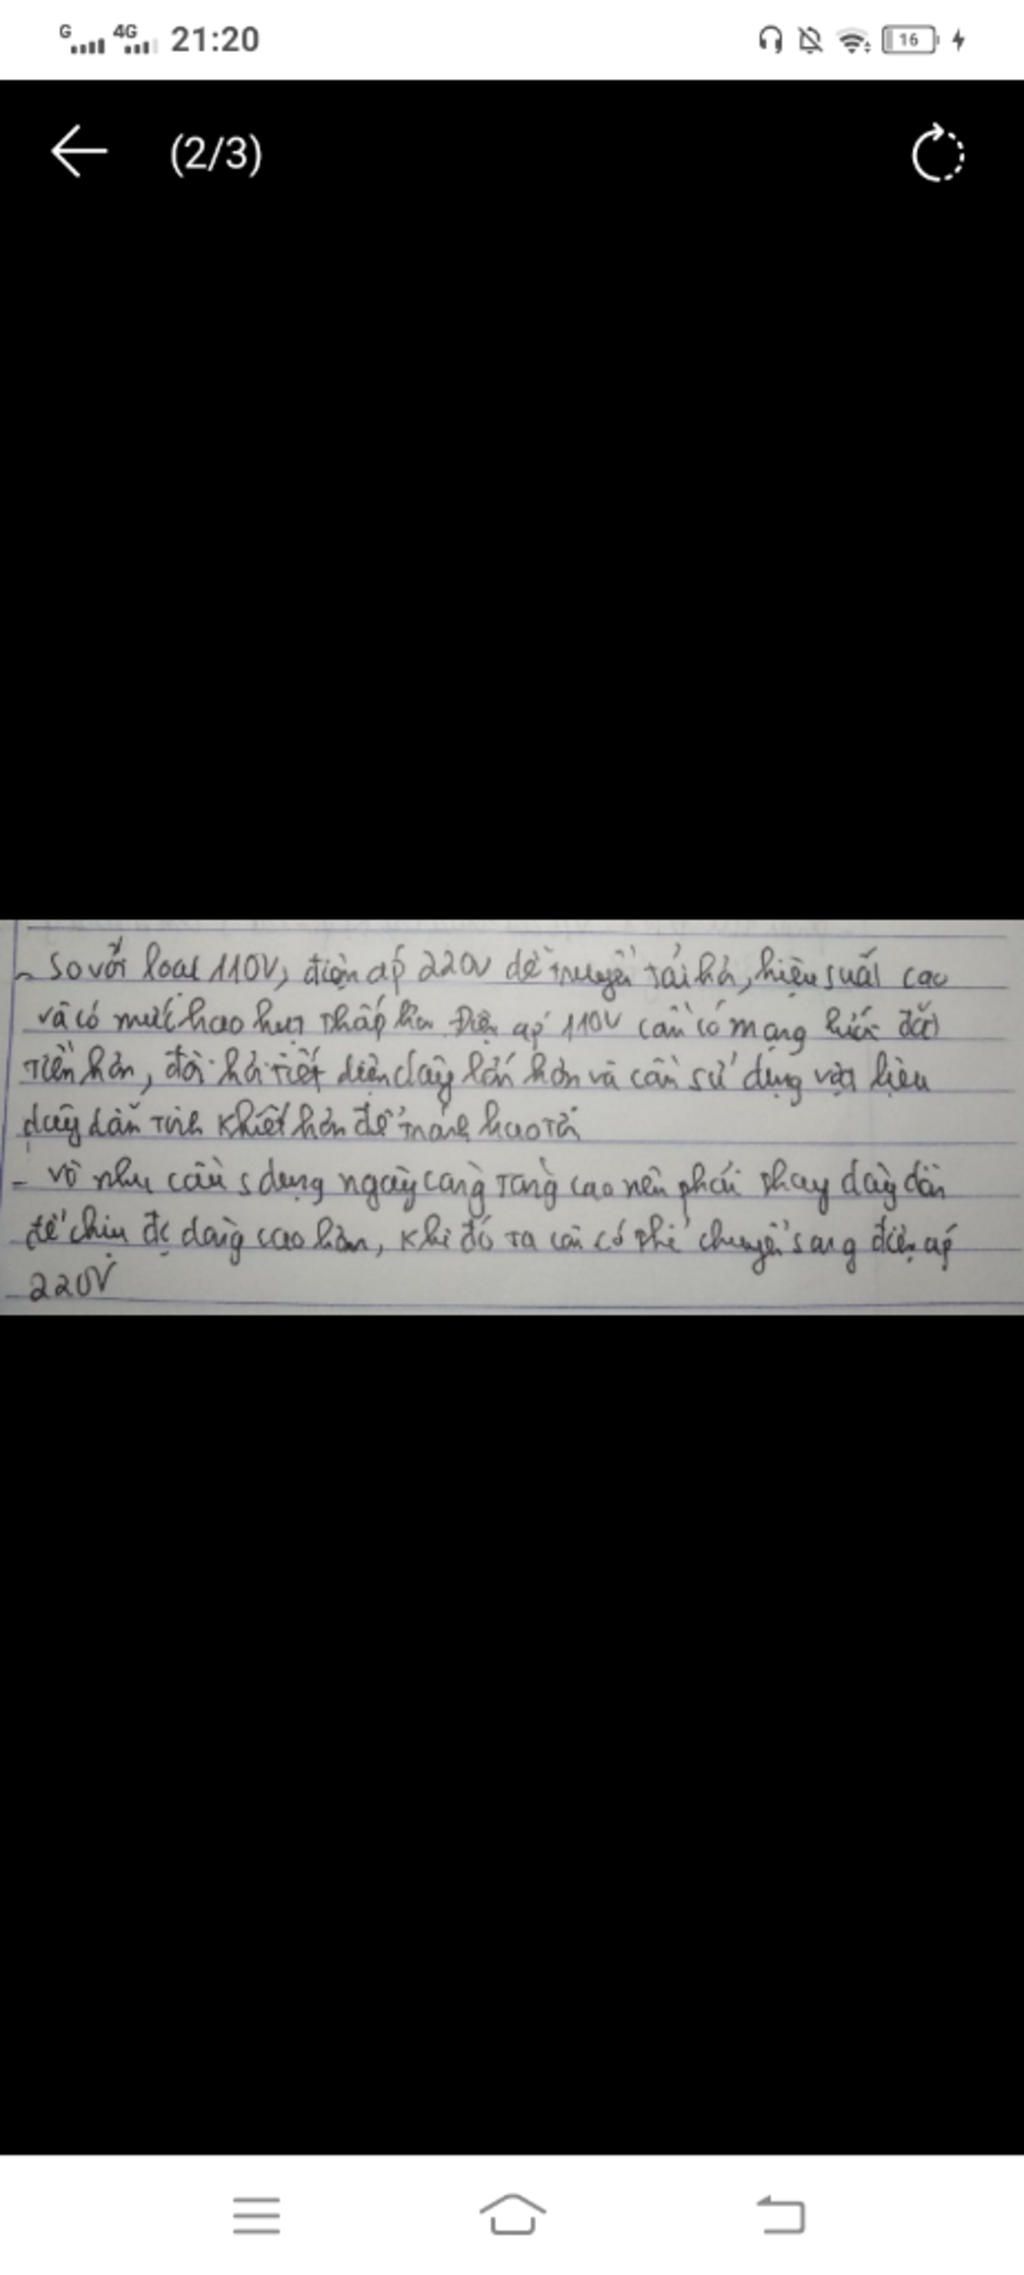 G 4G 21:20 16
(2/3)
- So với loại 110V, điện áp 220V dễ truyền tải hơn, hiệu suất cao
và có mức hao hụt thấp hơn. Điện áp 110V cần có mạng lưới đắt
tiền hơn, đòi hỏi tiết diện dây lớn hơn và cần sử dụng vật liệu
dây dẫn tinh khiết hơn để tránh hao tải
- Vì nhu cầu sdụng ngày càng tăng cao nên phải thay dây dẫn
để chịu đc dòng cao hơn, khi đó ta cần có thể chuyển sang điện áp
220V